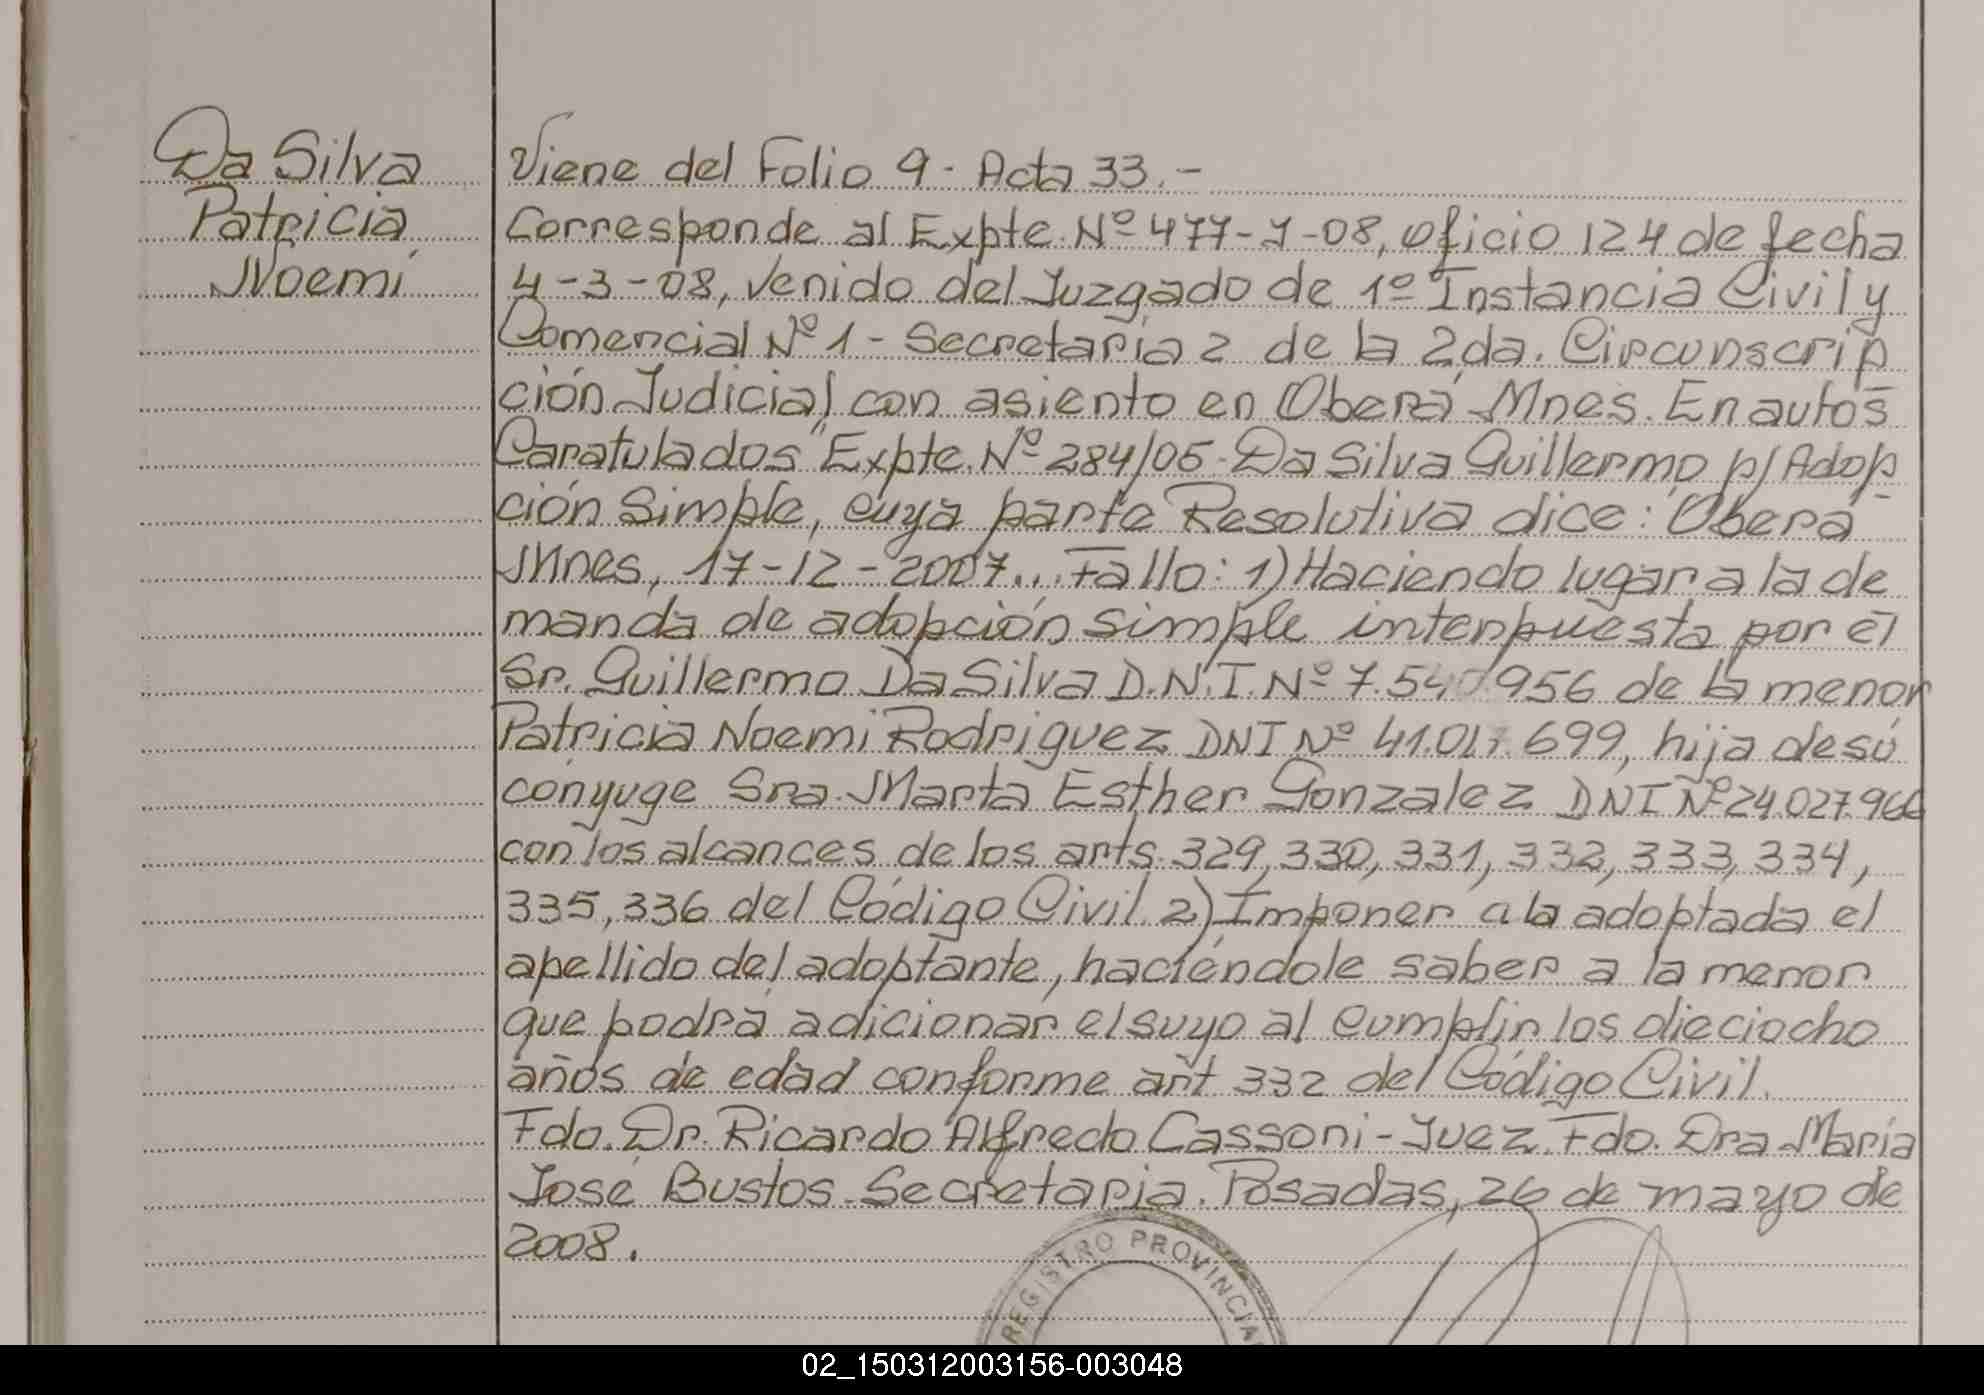 Da Silva
Patricia
Noemí
Viene del Folio 9 - Acta 33.-
Corresponde al Expte. Nº 477-J-08, oficio 124 de fecha
4-3-08, venido del Juzgado de 1º Instancia Civil y
Comercial Nº 1 - Secretaría 2 de la 2da. Circunscrip
ción Judicial, con asiento en Oberá Mnes. En autos
Caratulados "Expte. Nº 284/05 - Da Silva Guillermo p/ Adop
ción Simple, cuya parte Resolutiva dice: Oberá
Mnes, 17-12-2007... Fallo: 1) Haciendo lugar a la de
manda de adopción simple interpuesta por el
Sr. Guillermo Da Silva D.N.I. Nº 7.540.956 de la menor
Patricia Noemi Rodriguez DNI Nº 41.017.699, hija de sú
cónyuge Sra. Marta Esther Gonzalez DNI Nº 24.027.966
con los alcances de los arts. 329, 330, 331, 332, 333, 334,
335, 336 del Código Civil. 2) Imponer a la adoptada el
apellido del adoptante, haciéndole saber a la menor
que podrá adicionar el suyo al cumplir los dieciocho
años de edad conforme art 332 del Código Civil.
Fdo. Dr. Ricardo Alfredo Cassoni - Juez. Fdo. Dra María
José Bustos - Secretaria. Posadas, 26 de mayo de
2008.
REGISTRO PROVINCIA
02_150312003156-003048